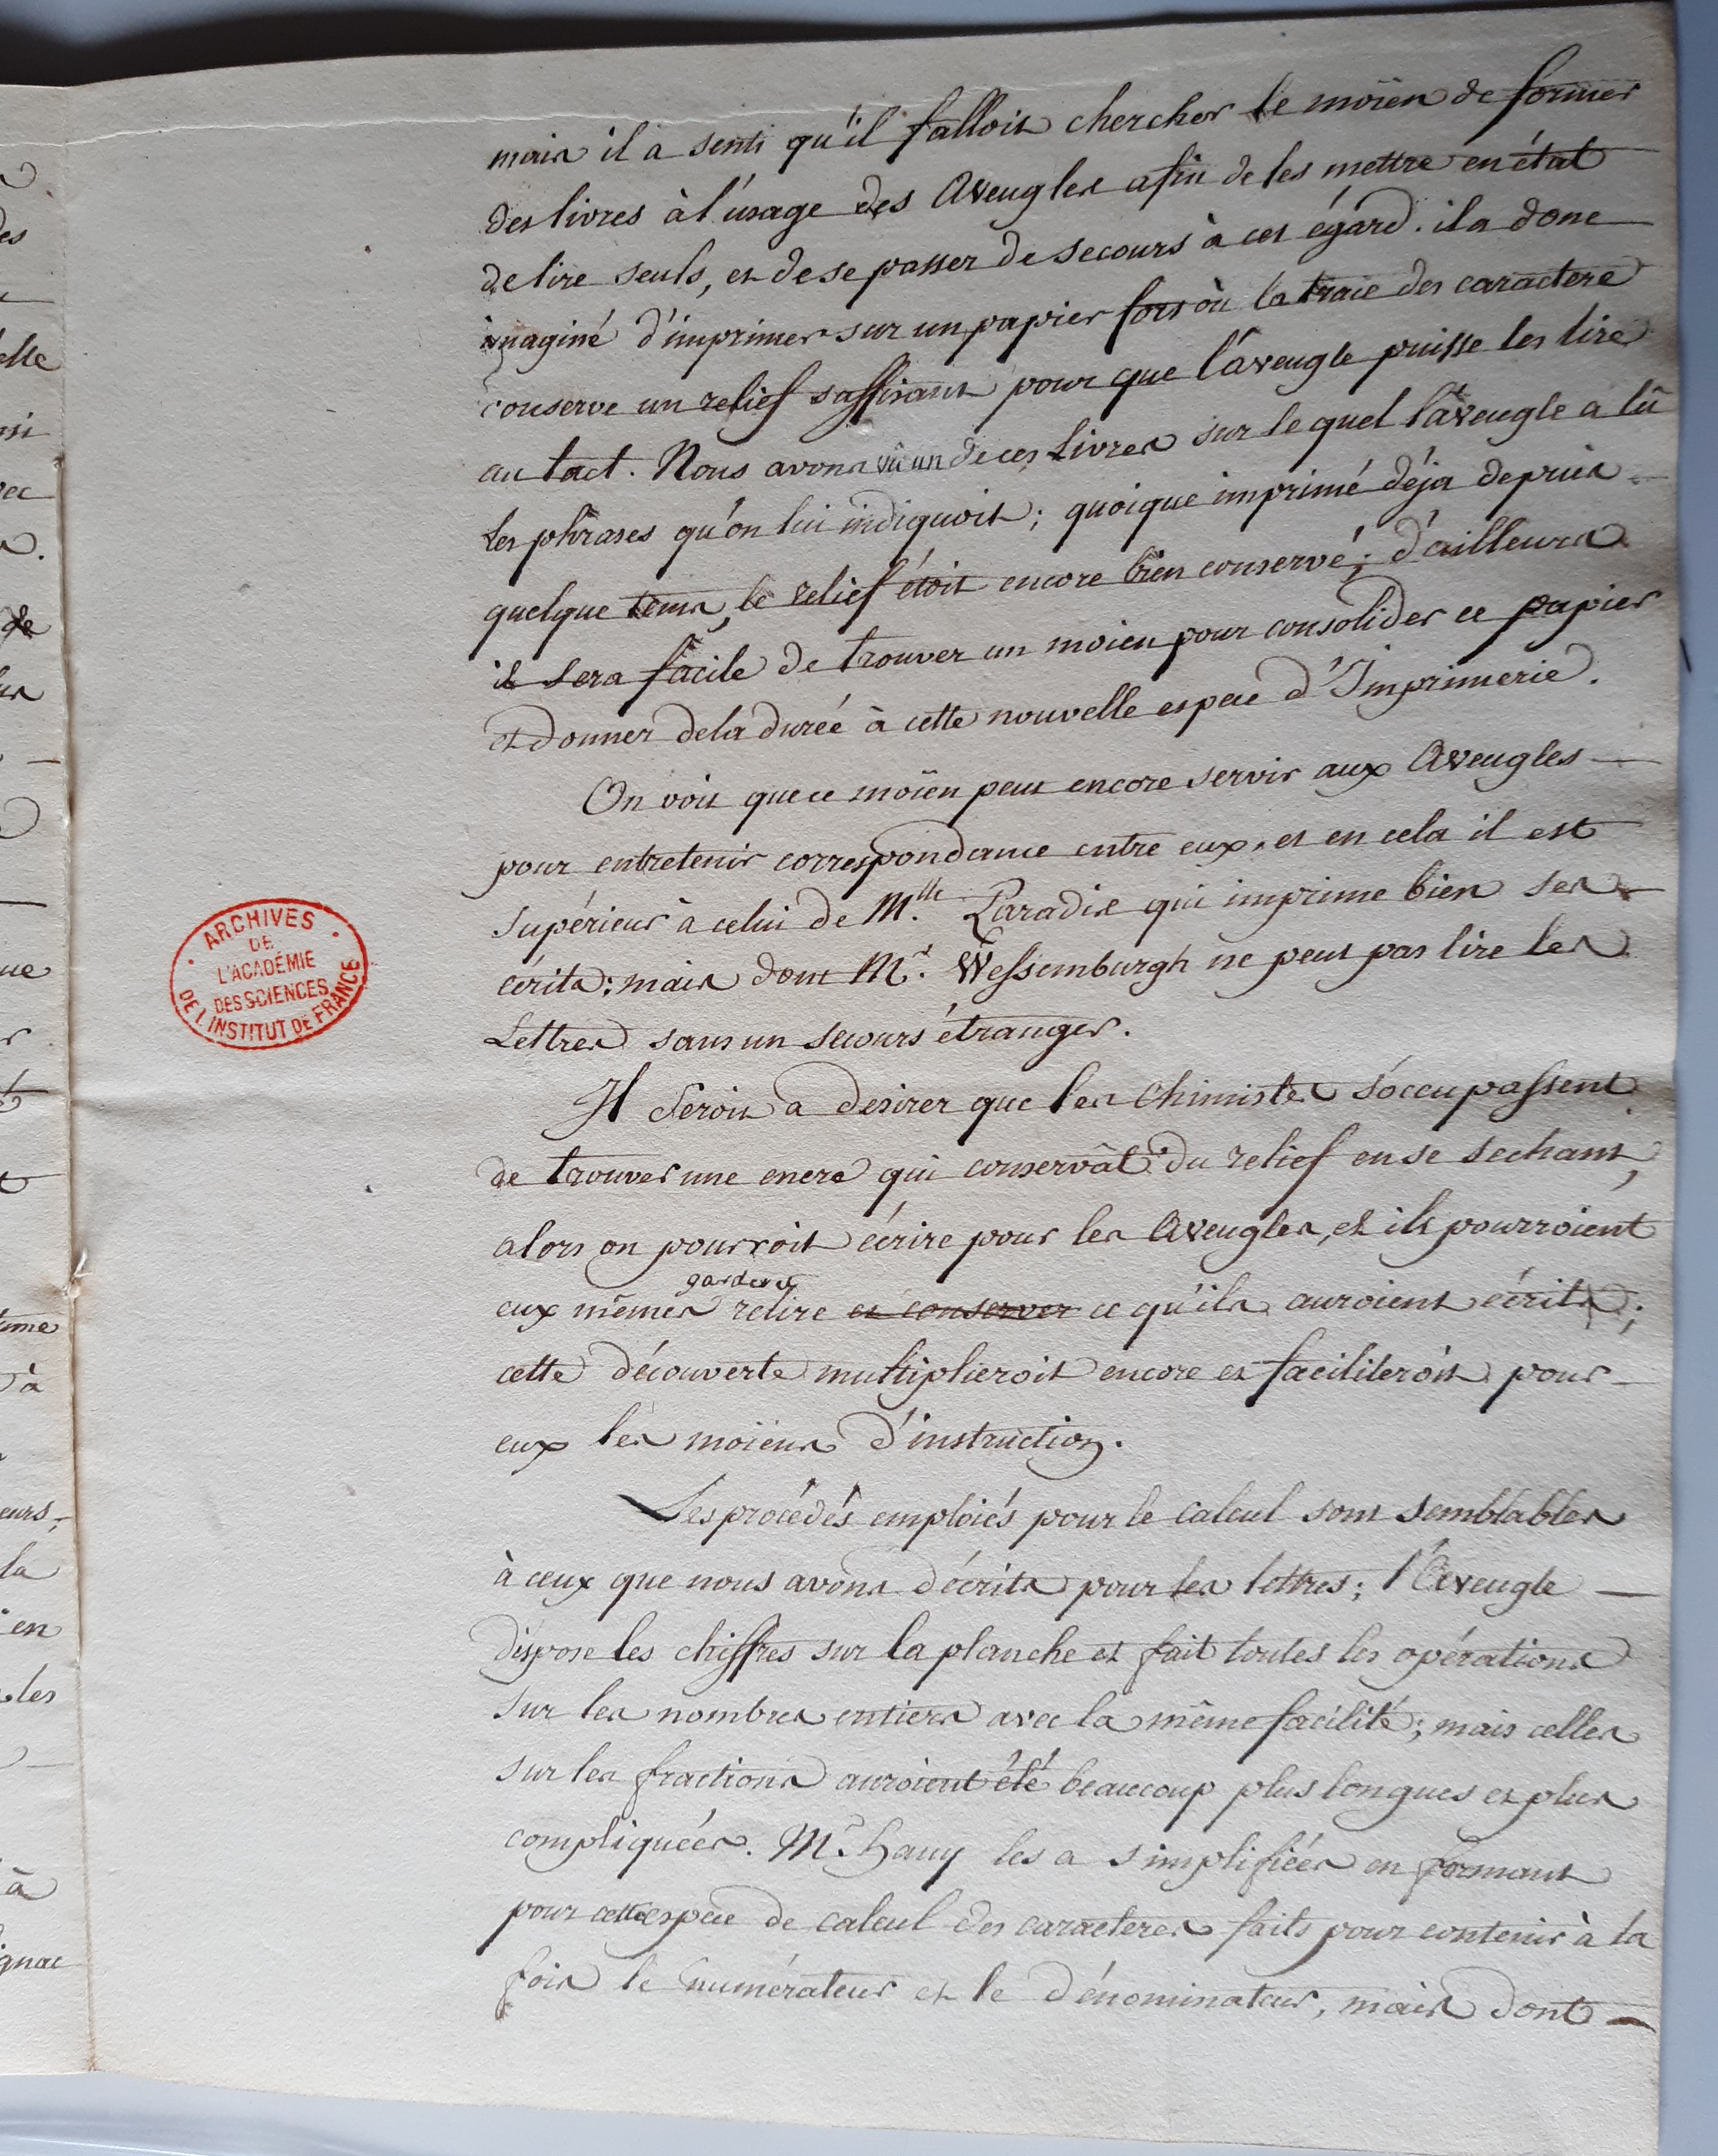 mais il a senti qu'il falloit chercher le moïen de former
des livres à l'usage des Aveugles afin de les mettre en état
de lire seuls, et de se passer de secours à cet égard. il a donc
imaginé d'imprimer sur un papier fort où la trace des caractere
conserve un relief suffisant pour que l'aveugle puisse les lire
au tact. Nous avons vû un de ces Livres sur le quel l'aveugle a lû
les phrases qu'on lui indiquoit; quoique imprimé déja depuis
quelque tems, le relief étoit encore bien conservé; d'ailleurs
il sera facile de trouver un moien pour consolider ce papier
et donner de la durée à cette nouvelle espece d'Imprimerie.
On voit que ce moïen peut encore servir aux Aveugles
pour entretenir correspondance entre eux, et en cela il est
supérieur à celui de M.lle Paradis qui imprime bien ses
écrits; mais dont Mr. Wessemburgh ne peut pas lire les
Lettres sans un secours étranger.
ARCHIVES
DE
L'ACADÉMIE
DES SCIENCES
DE L'INSTITUT DE FRANCE
Il seroit a desirer que les Chimistes s'occupassent
de trouver une encre qui conservât du relief en se sechant,
alors on pourroit écrire pour les Aveugles, et ils pourroient
garder et
eux mêmes relire et conserver ce qu'ils auroient écrits;
cette découverte multiplieroit encore et faciliteroit pour
eux les moïens d'instruction.
Les procédés emploiés pour le calcul sont semblables
à ceux que nous avons décrits pour les lettres; l'Aveugle
dispose les chiffres sur la planche et fait toutes les opérations
sur les nombres entiers avec la même facilité; mais celles
sur les fractions auroient été beaucoup plus longues et plus
compliquées. Mr. hauy les a simplifiées en formant
pour cette espece de calcul des caracteres faits pour contenir à la
fois le numérateur et le dénominateur, mais dont